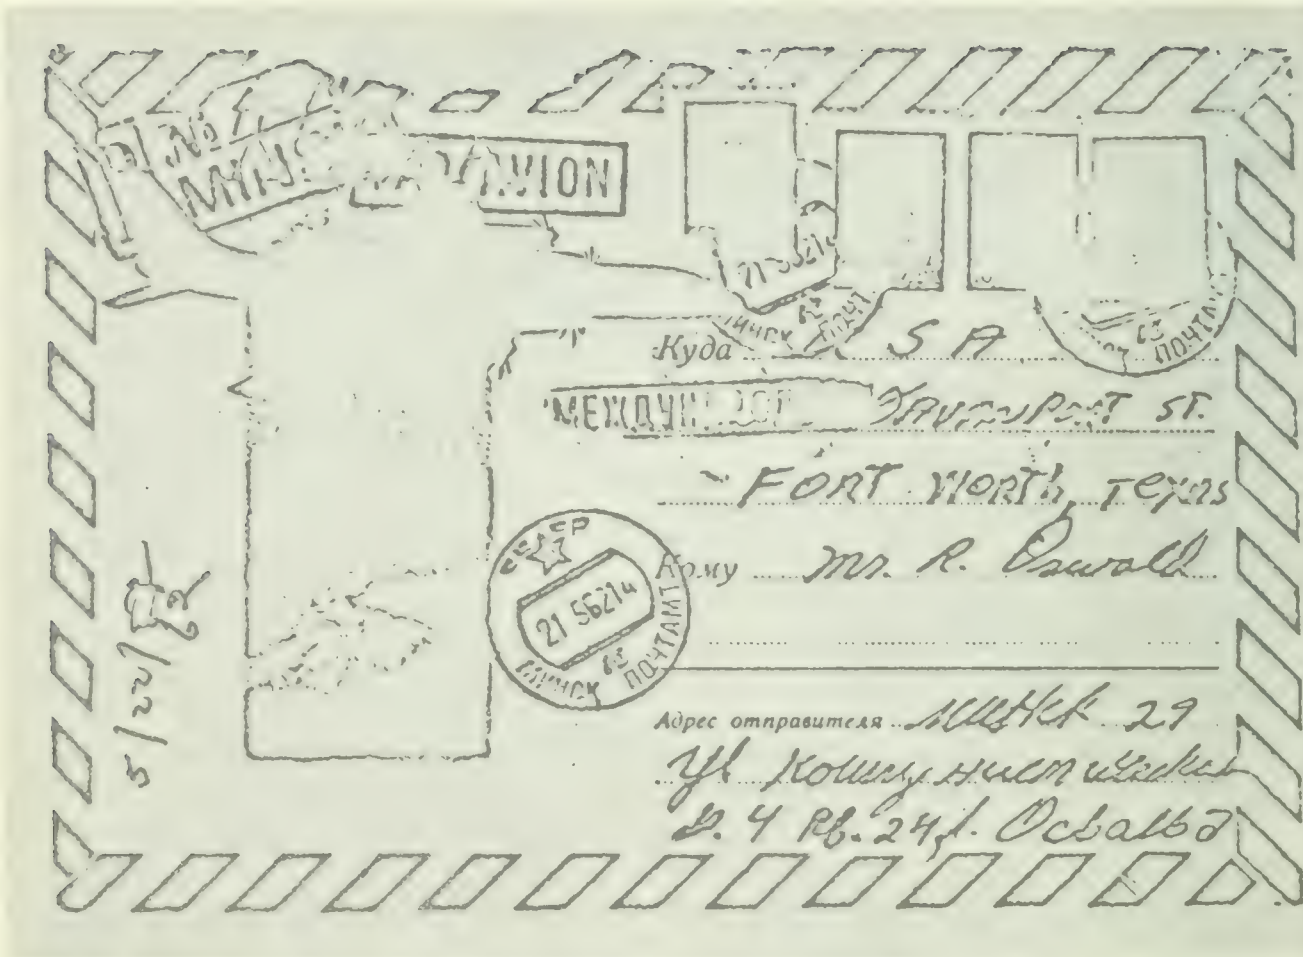 № 1
AVION
21 5621
МИНСК ПОЧТ
ПОЧТА
Куда S A
МЕЖДУН
Davenport ST.
FORT WORTH, TEXAS
Кому Mr. R. Oswald
СССР
21 56214
МИНСК ПОЧТАМТ
5/22/62
Адрес отправителя МИНСК 29
Ул Коммунистическая
Д. 4 кв. 24, А. Освальд